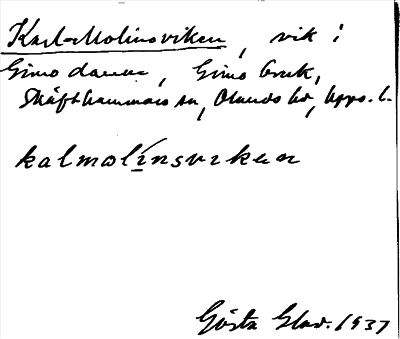 Karl-Molinsviken, vik i
Gimo damm, Gimo bruk,
Skäfthammars sn, Olands hd, Upps. l.
kalmolínsvikən
Gösta Glad. 1937